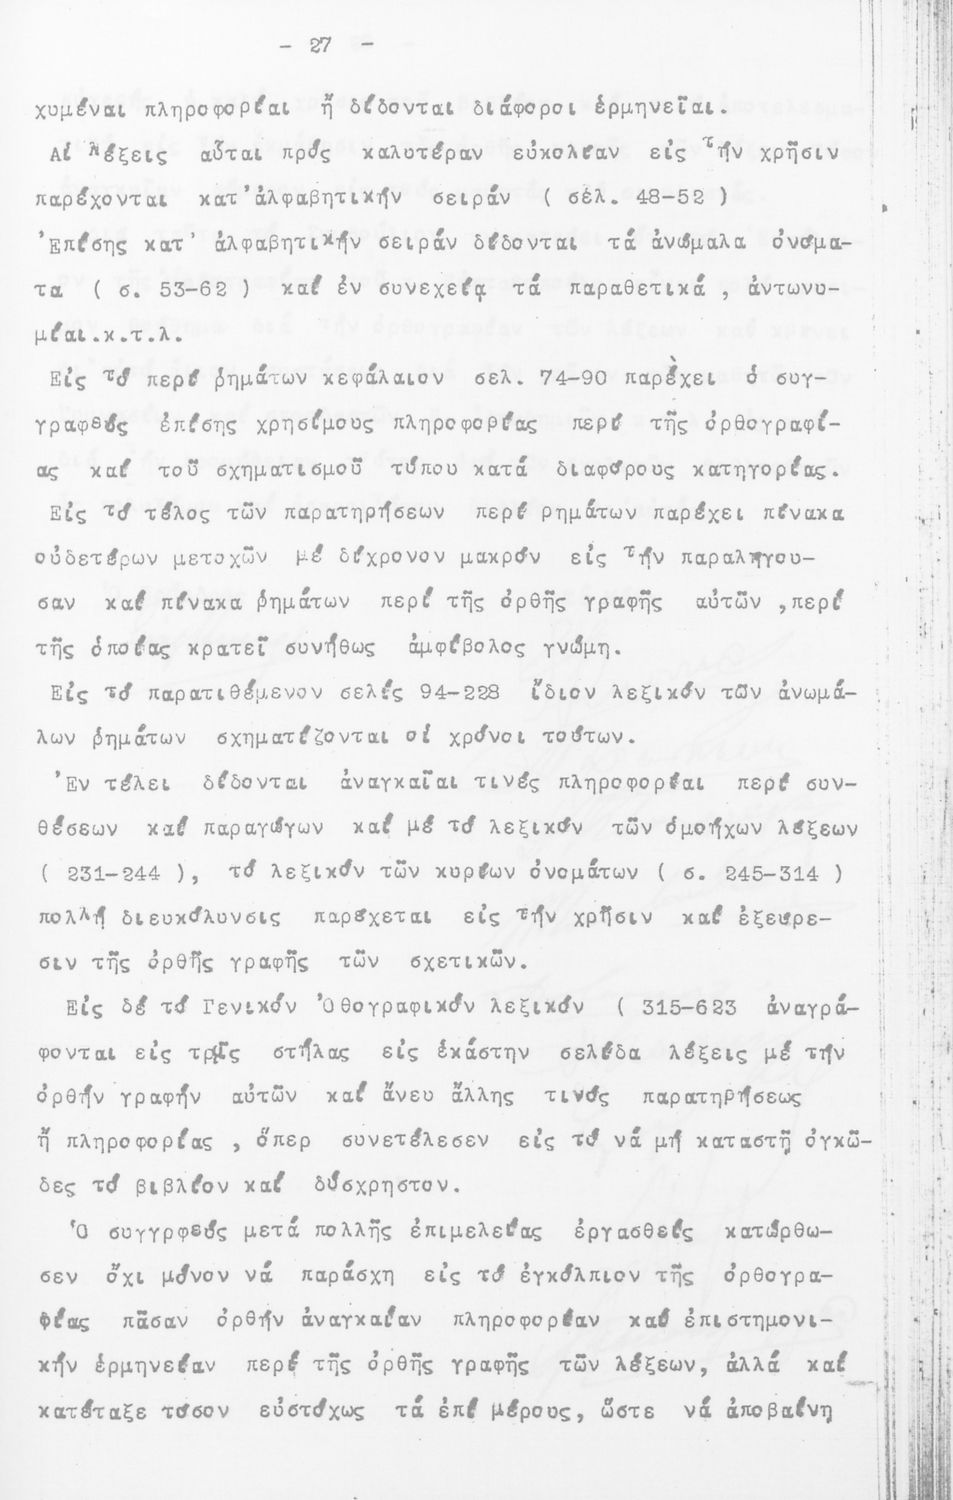 - 27 -
χυμέναι πληροφορίαι ἤ δίδονται διάφοροι ἑρμηνεῖαι.
Αἱ λέξεις αὗται πρός καλυτέραν εὐκολίαν εἰς τήν χρῆσιν
παρέχονται κατ'ἀλφαβητικήν σειράν ( σέλ. 48-52 )
Ἐπίσης κατ' ἀλφαβητικήν σειράν δίδονται τά ἀνώμαλα ὀνόμα-
τα ( σ. 53-62 ) καί ἐν συνεχείᾳ τά παραθετικά , ἀντωνυ-
μίαι.κ.τ.λ.
Εἰς τό περί ῥημάτων κεφάλαιον σελ. 74-90 παρέχει ὁ συγ-
γραφεύς ἐπίσης χρησίμους πληροφορίας περί τῆς ὀρθογραφί-
ας καί τοῦ σχηματισμοῦ τύπου κατά διαφόρους κατηγορίας.
Εἰς τό τέλος τῶν παρατηρήσεων περί ρημάτων παρέχει πίνακα
οὐδετέρων μετοχῶν μέ δίχρονον μακρόν εἰς τήν παραλήγου-
σαν καί πίνακα ῥημάτων περί τῆς ὀρθῆς γραφῆς αὐτῶν ,περί
τῆς ὁποίας κρατεῖ συνήθως ἀμφίβολος γνώμη.
Εἰς τό παρατιθέμενον σελίς 94-228 ἴδιον λεξικόν τῶν ἀνωμά-
λων ῥημάτων σχηματίζονται οἱ χρόνοι τούτων.
Ἐν τέλει δίδονται ἀναγκαῖαι τινές πληροφορίαι περί συν-
θέσεων καί παραγώγων καί μέ τό λεξικόν τῶν ὁμοήχων λέξεων
( 231-244 ), τό λεξικόν τῶν κυρίων ὀνομάτων ( σ. 245-314 )
πολλή διευκόλυνσις παρέχεται εἰς τήν χρῆσιν καί ἐξεύρε-
σιν τῆς ὀρθῆς γραφῆς τῶν σχετικῶν.
Εἰς δέ τό Γενικόν Ὀθογραφικόν λεξικόν ( 315-623 ἀναγρά-
φονται εἰς τρεῖς στήλας εἰς ἑκάστην σελίδα λέξεις μέ τήν
ὀρθήν γραφήν αὐτῶν καί ἄνευ ἄλλης τινός παρατηρήσεως
ἤ πληροφορίας , ὅπερ συνετέλεσεν εἰς τό νά μή καταστῇ ὀγκῶ-
δες τό βιβλίον καί δύσχρηστον.
Ὁ συγγρφεύς μετά πολλῆς ἐπιμελείας ἐργασθείς κατώρθω-
σεν ὄχι μόνον νά παράσχη εἰς τό ἐγκόλπιον τῆς ὀρθογρα-
φίας πᾶσαν ὀρθήν ἀναγκαίαν πληροφορίαν καί ἐπιστημονι-
κήν ἑρμηνείαν περί τῆς ὀρθῆς γραφῆς τῶν λέξεων, ἀλλά καί
κατέταξε τόσον εὐστόχως τά ἐπί μέρους, ὥστε νά ἀποβαίνῃ